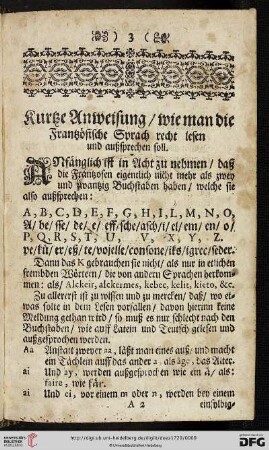 ) 3 (
Kurtze Anweisung / wie man die
Frantzösische Sprach recht lesen
und außsprechen soll.
ANfänglich ist in Acht zu nehmen / daß
die Frantzosen eigentlich nicht mehr als zwey
und zwantzig Buchstaben haben / welche sie
also außsprechen:
A, B, C, D, E, F, G, H, I, L, M, N, O,
A / be / sse / de / e / eff / sche / asch / i / el / em / en / o /
P, Q, R, S, T, U, V, X, Y, Z.
pe / kü / er / eß / te / voielle / consone / iks / igrec / seder.
Dann das K gebrauchen sie nicht / als nur in etlichen
frembden Wörtern / die von andern Sprachen herkom-
men: als / Alckeir, alckermes, kebec, kelit, kioto, &c.
Zu allererst ist zu wissen und zu mercken / daß / wo et-
was solte in dem Lesen vorfallen / davon hierinn keine
Meldung gethan wird / so muß es nur schlecht nach den
Buchstaben / wie auff Latein und Teutsch gelesen und
außgesprochen werden.
Aa Anstatt zweyer aa, läßt man eines auß / und macht
ein Dächlein auff das ander â. als âge, das Alter.
ai Und ay, werden außgesprochen wie ein ä / als:
faire, wie fär.
ai Und ei, vor einem m oder n, werden bey einem
A 2 einsylbig
http://digi.ub.uni-heidelberg.de/diglit/
© Universitätsbibliothek Heidelberg
gefördert durch die
DFG